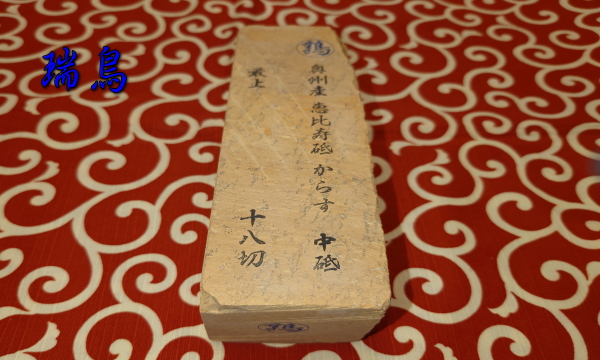 瑞鳥
鶏
奥州産 恵比寿砥 からす 中砥
最上
十八切
鶏